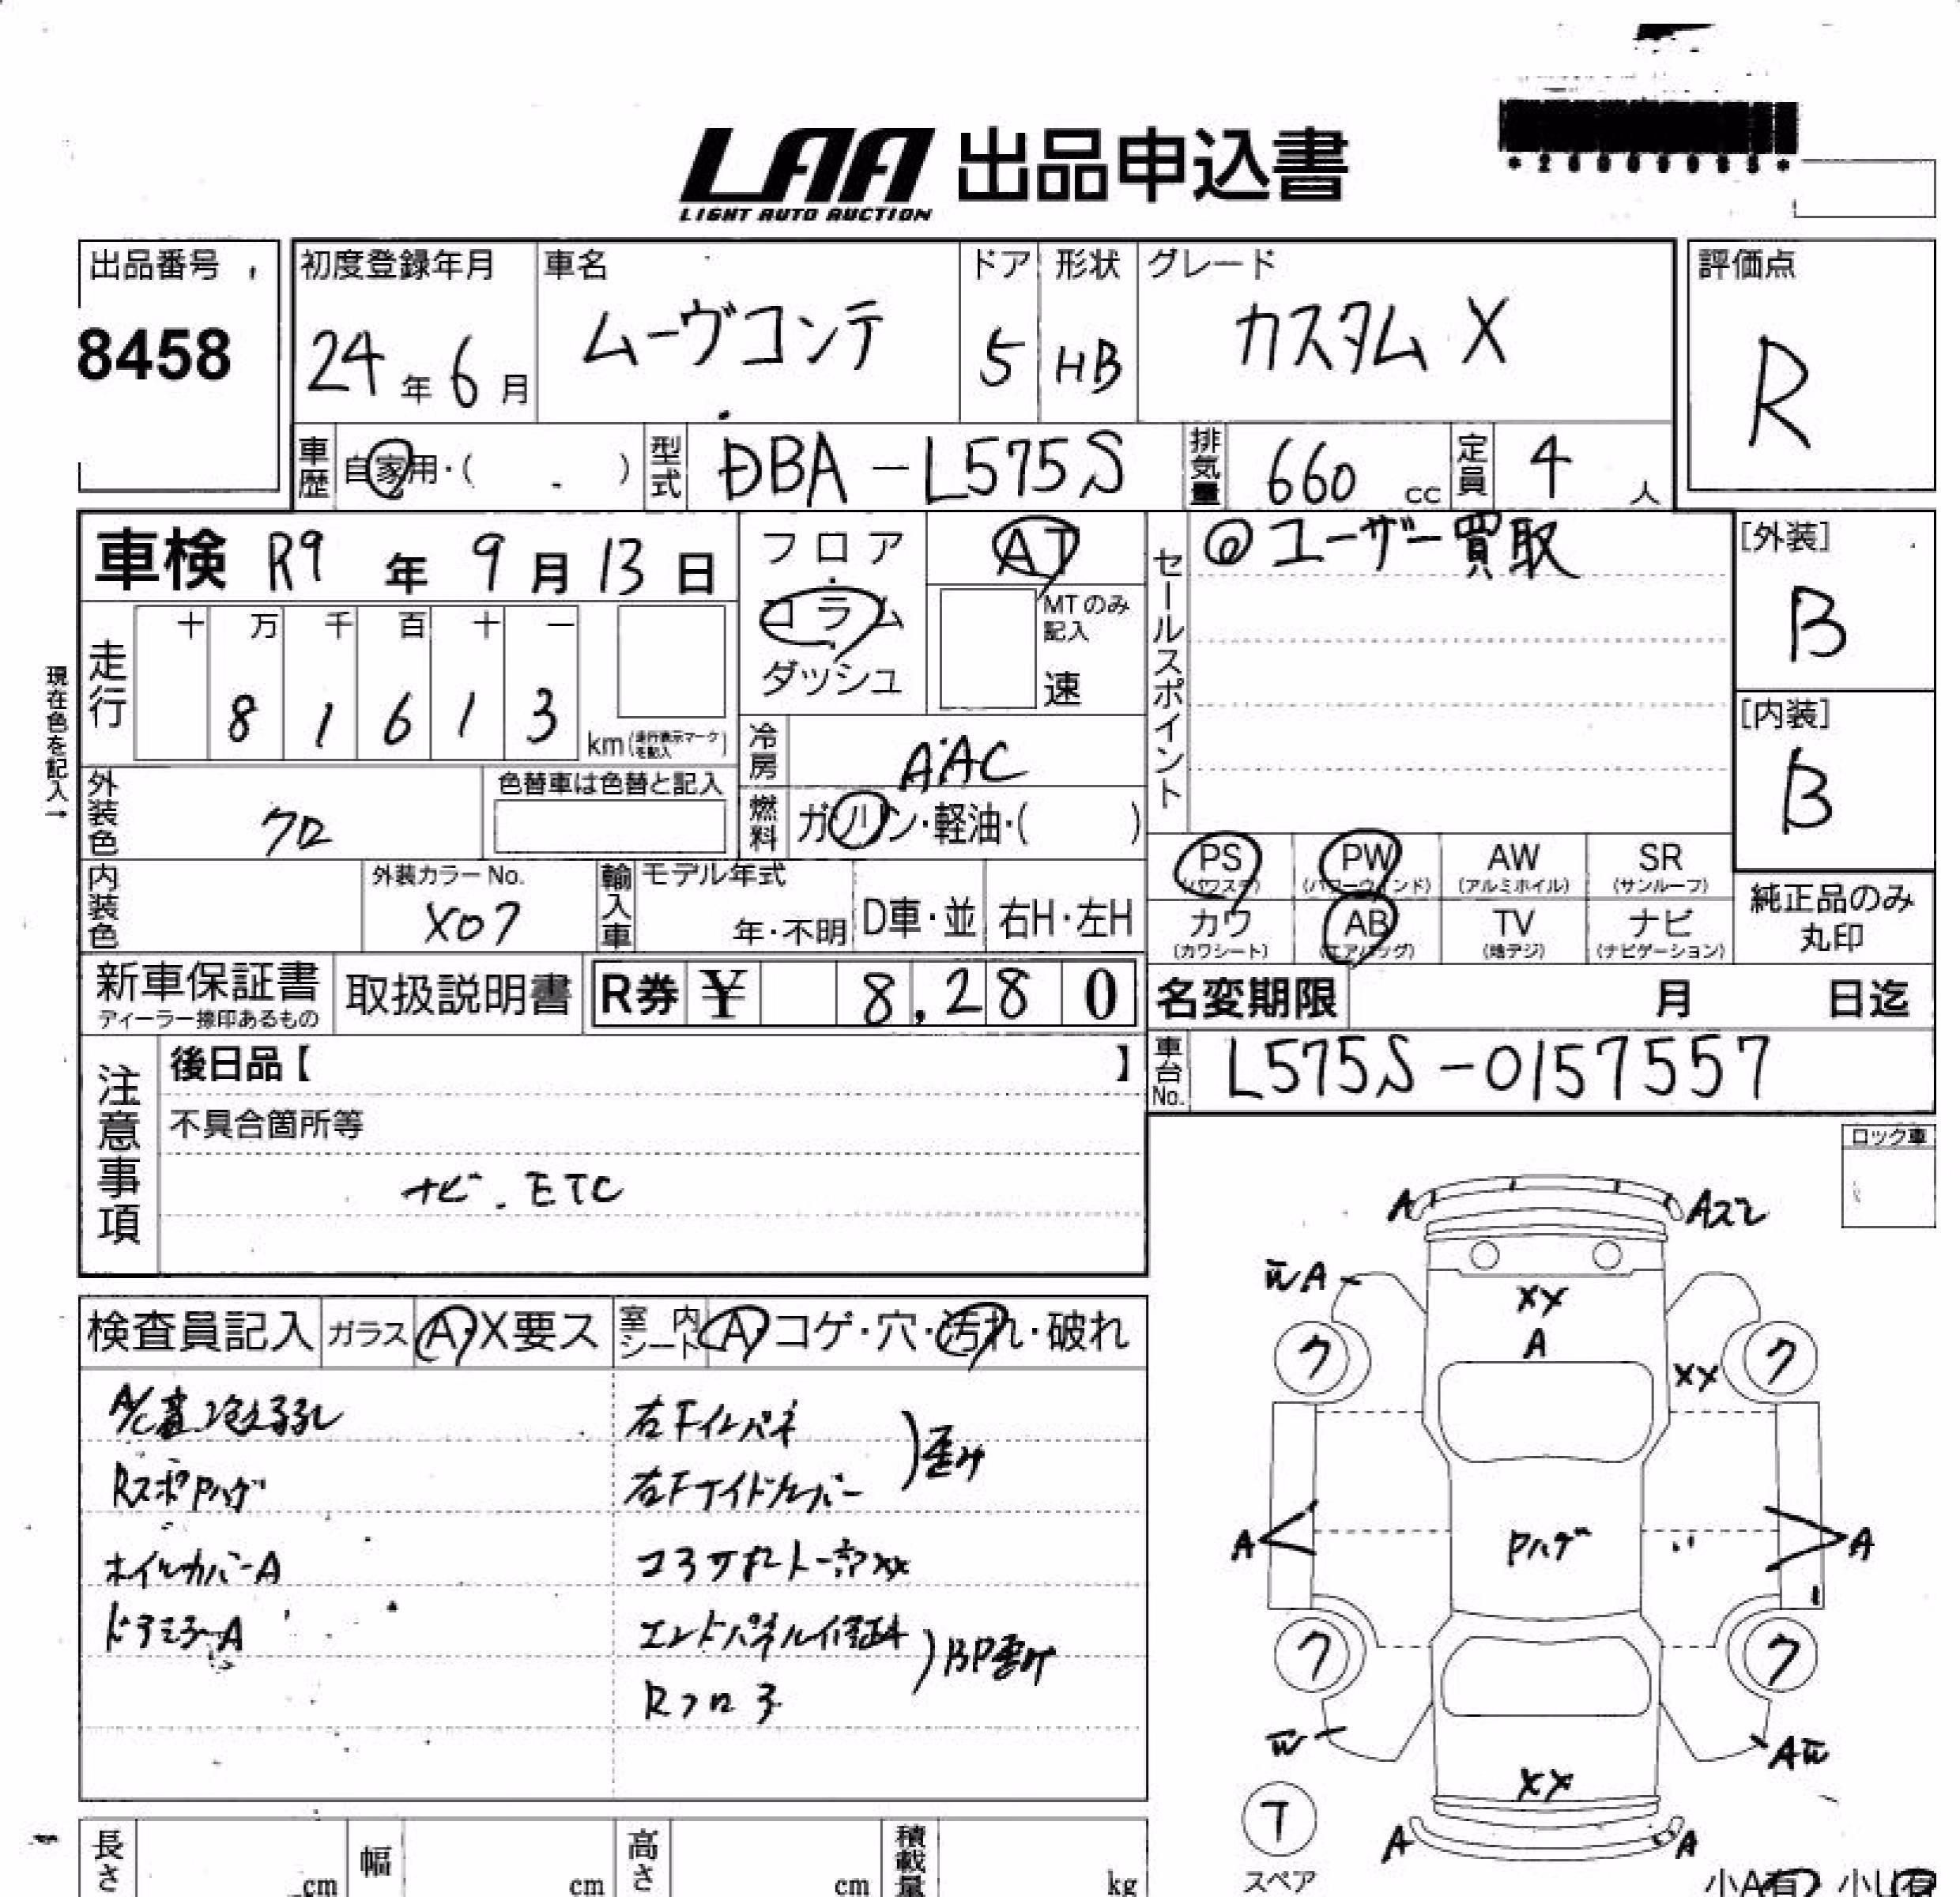 LAA 出品申込書
LIGHT AUTO AUCTION
出品番号
8458
初度登録年月
24年6月
車名
ムーヴコンテ
ドア
5
形状
HB
グレード
カスタム X
評価点
R
車歴
自家用・( )
型式
DBA-L575S
排気量
660 cc
定員
4 人
車検 R9 年 9 月 13 日
フロア
コラム
ダッシュ
AT
MTのみ記入
速
セールスポイント
◎ユーザー買取
[外装]
B
[内装]
B
現在色を記入→
走行
十 万 千 百 十 一
8 1 6 1 3
km(走行表示マークを記入)
冷房
AAC
燃料
ガソリン・軽油・( )
外装色
クロ
色替車は色替と記入
内装色
外装カラーNo.
X07
輸入車
モデル年式
年・不明
D車・並
右H・左H
PS
(パワステ)
PW
(パワーウインド)
AW
(アルミホイル)
SR
(サンルーフ)
カワ
(カワシート)
AB
(エアバッグ)
TV
(地デジ)
ナビ
(ナビゲーション)
純正品のみ
丸印
新車保証書
ディーラー捺印あるもの
取扱説明書
R券 ¥ 8,280
名変期限 月 日迄
注意事項
後日品【 】
不具合箇所等
ナビ. ETC
車台No.
L575S-0157557
ロック車
検査員記入
ガラス
A・X要ス
室内シート
A・コゲ・穴・汚れ・破れ
RスポPハゲ
ホイルカバーA
ドアミラーA
右Fインパネ
右Fサイドメンバー
)歪み
コアサポート一部XX
エンドパネル修正
Rフロア
A
A
XX
A
ク
ク
XX
A
Pハゲ
A
ク
ク
XX
A
A
T
スペア
長さ
cm
幅
cm
高さ
cm
積載量
kg
小A有
小U有